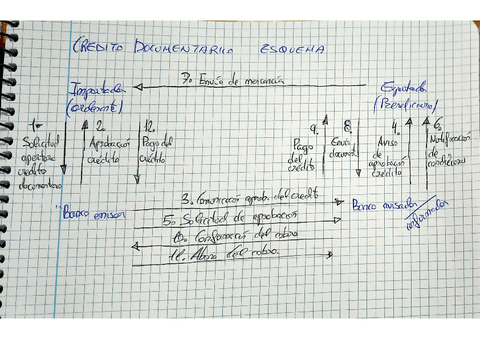 CRÉDITO DOCUMENTARIO ESQUEMA
7. Envía de mercancía
Importador
(ordenante)
Exportador
(Beneficiario)
1.
Solicitud
apertura
crédito
documentario
2.
Aprobación
crédito
12.
Pago del
crédito
9.
Pago
del
crédito
8.
Envía
document.
4.
Aviso
de aprobación
crédito
6.
Notificación
de
condiciones
3. Comunicación aprob. del crédit
Banco emisor
Banco avisador/
informador
5. Solicitud de aprobación
10. Confirmación del cobro
11. Abono del cobro.